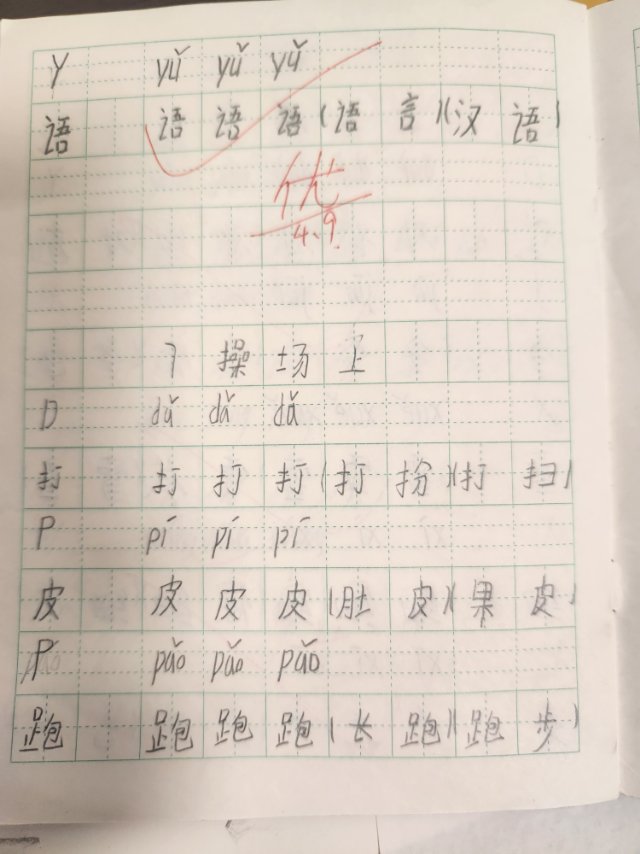 Y yǔ yǔ yǔ
语 语 语 语(语言)(汉语)
优
4.9.
7 操场上
D dǎ dǎ dǎ
打 打 打 打(打扮)(打扫)
P pí pí pí
皮 皮 皮 皮(肚皮)(果皮)
P pǎo pǎo pǎo
跑 跑 跑 跑(长跑)(跑步)